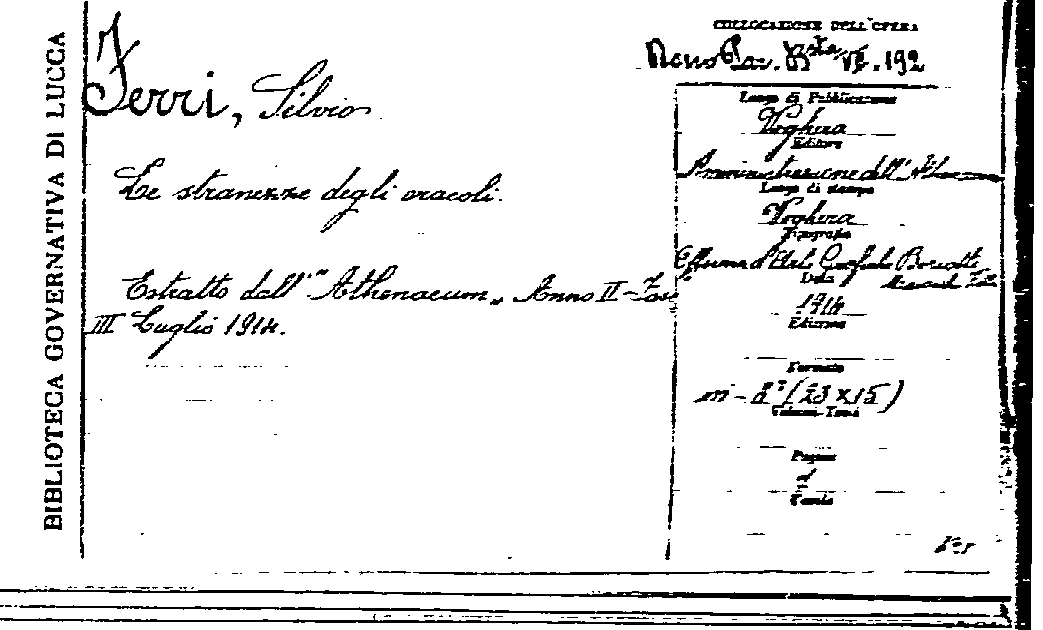 BIBLIOTECA GOVERNATIVA DI LUCCA
Ferri, Silvio
Le stranezze degli oracoli.
Estratto dall' "Athenaeum„ Anno II - Fasc
III Luglio 1914.
COLLOCAZIONE DELL'OPERA
Busta 192
Luogo di Pubblicazione
Voghera
Editore
Amministrazione dell'Athenaeum
Luogo di stampa
Voghera
Tipografia
Officina d'Arti Grafiche Boriotti
Data
1914
Edizione
Formato
in-8° (23 x 15)
Volume-Tomo
Pagine
Tavole